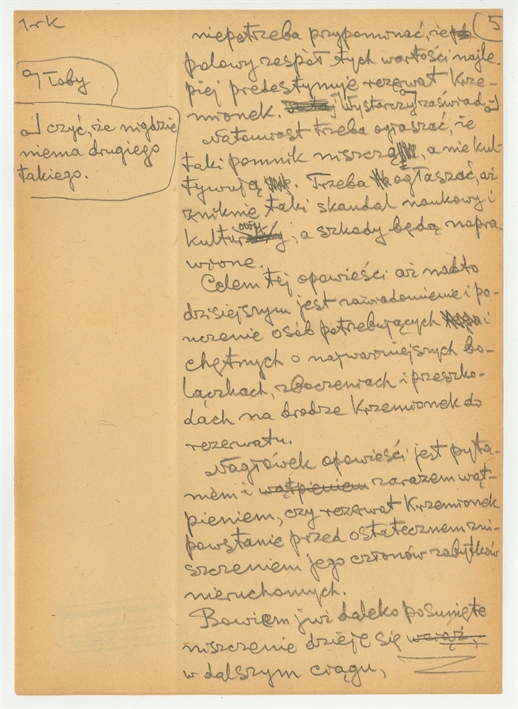 1-rk
5
głoby
czyć, że nigdzie
niema drugiego
takiego.
niepotrzeba przypominać, że
palowy zespół tych wartości najle-
piej predestynuje rezerwat Krze-
mionek. Wystarczy zaświad-
Natomiast trzeba ogłaszać, że
taki pomnik niszczą, a nie kul-
tywują. Trzeba ogłaszać, aż
zniknie taki skandal naukowy i
kulturowy, a szkody będą napra
wione.
Celem tej opowieści aż nadto
dzisiejszym jest zawiadomienie i po-
uczenie osób potrzebujących i
chętnych o najważniejszych bo-
lączkach, zboczeniach i przeszko-
dach na drodze Krzemionek do
rezerwatu.
Nagłówek opowieści jest pyta-
niem i wątpieniem zarazem wąt-
pieniem, czy rezerwat Krzemionek
powstanie przed ostatecznem zni-
szczeniem jego członów zabytków
nieruchomych.
Bowiem już daleko posunięte
niszczenie dzieje się wciąż,
w dalszym ciągu,